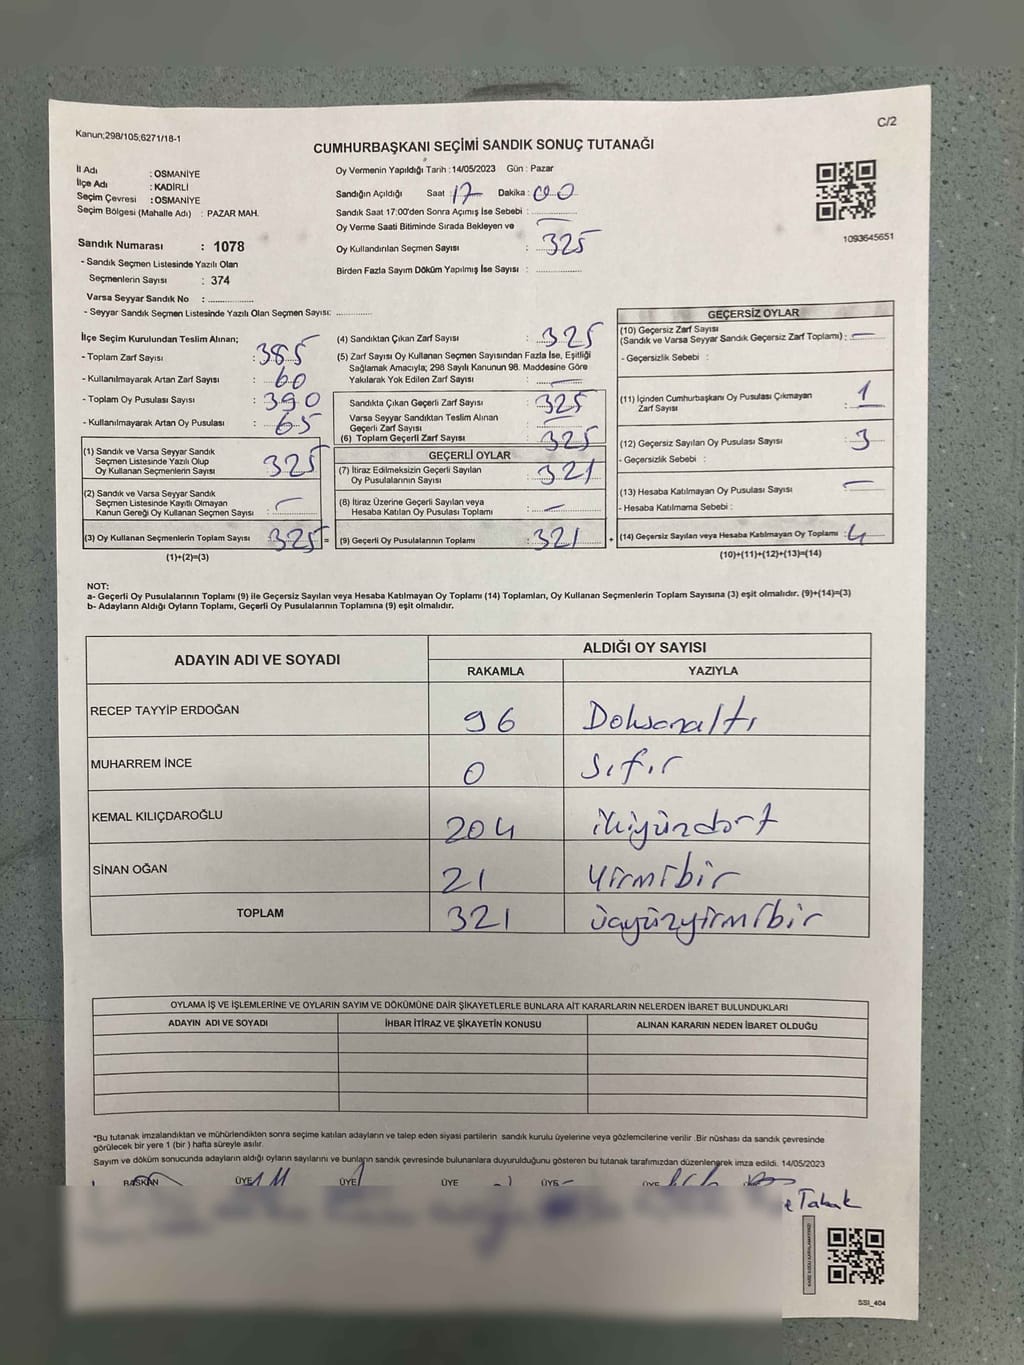 Kanun;298/105,6271/18-1
C/2
CUMHURBAŞKANI SEÇİMİ SANDIK SONUÇ TUTANAĞI
İl Adı : OSMANİYE
İlçe Adı : KADİRLİ
Seçim Çevresi : OSMANİYE
Seçim Bölgesi (Mahalle Adı) : PAZAR MAH.
Sandık Numarası : 1078
- Sandık Seçmen Listesinde Yazılı Olan
Seçmenlerin Sayısı : 374
Varsa Seyyar Sandık No : ..............
- Seyyar Sandık Seçmen Listesinde Yazılı Olan Seçmen Sayısı: ............
Oy Vermenin Yapıldığı Tarih : 14/05/2023 Gün : Pazar
Sandığın Açıldığı Saat : 17 Dakika : 00
Sandık Saat 17:00'den Sonra Açımış İse Sebebi : ..............
Oy Verme Saati Bitiminde Sırada Bekleyen ve
Oy Kullandırılan Seçmen Sayısı : 325
Birden Fazla Sayım Döküm Yapılmış İse Sayısı : ..............
1093645651
İlçe Seçim Kurulundan Teslim Alınan;
- Toplam Zarf Sayısı : 385
- Kullanılmayarak Artan Zarf Sayısı : 60
- Toplam Oy Pusulası Sayısı : 390
- Kullanılmayarak Artan Oy Pusulası : 65
(1) Sandık ve Varsa Seyyar Sandık
Seçmen Listesinde Yazılı Olup
Oy Kullanan Seçmenlerin Sayısı : 325
(2) Sandık ve Varsa Seyyar Sandık
Seçmen Listesinde Kayıtlı Olmayan
Kanun Gereği Oy Kullanan Seçmen Sayısı : —
(3) Oy Kullanan Seçmenlerin Toplam Sayısı : 325 =
(1)+(2)=(3)
(4) Sandıktan Çıkan Zarf Sayısı : 325
(5) Zarf Sayısı Oy Kullanan Seçmen Sayısından Fazla İse, Eşitliği
Sağlamak Amacıyla; 298 Sayılı Kanunun 98. Maddesine Göre
Yakılarak Yok Edilen Zarf Sayısı : —
Sandıkta Çıkan Geçerli Zarf Sayısı : 325
Varsa Seyyar Sandıktan Teslim Alınan
Geçerli Zarf Sayısı : —
(6) Toplam Geçerli Zarf Sayısı : 325
GEÇERLİ OYLAR
(7) İtiraz Edilmeksizin Geçerli Sayılan
Oy Pusulalarının Sayısı : 321
(8) İtiraz Üzerine Geçerli Sayılan veya
Hesaba Katılan Oy Pusulası Toplamı : —
(9) Geçerli Oy Pusulalarının Toplamı : 321 +
GEÇERSİZ OYLAR
(10) Geçersiz Zarf Sayısı
(Sandık ve Varsa Seyyar Sandık Geçersiz Zarf Toplamı) : —
- Geçersizlik Sebebi :
(11) İçinden Cumhurbaşkanı Oy Pusulası Çıkmayan
Zarf Sayısı : 1
(12) Geçersiz Sayılan Oy Pusulası Sayısı : 3
- Geçersizlik Sebebi :
(13) Hesaba Katılmayan Oy Pusulası Sayısı : —
- Hesaba Katılmama Sebebi :
(14) Geçersiz Sayılan veya Hesaba Katılmayan Oy Toplamı : 4
(10)+(11)+(12)+(13)=(14)
NOT:
a- Geçerli Oy Pusulalarının Toplamı (9) ile Geçersiz Sayılan veya Hesaba Katılmayan Oy Toplamı (14) Toplamları, Oy Kullanan Seçmenlerin Toplam Sayısına (3) eşit olmalıdır. (9)+(14)=(3)
b- Adayların Aldığı Oyların Toplamı, Geçerli Oy Pusulalarının Toplamına (9) eşit olmalıdır.
ADAYIN ADI VE SOYADI
ALDIĞI OY SAYISI
RAKAMLA YAZIYLA
RECEP TAYYİP ERDOĞAN 96 Doksanaltı
MUHARREM İNCE 0 Sıfır
KEMAL KILIÇDAROĞLU 204 ikiyüzdört
SİNAN OĞAN 21 Yirmibir
TOPLAM 321 üçyüzyirmibir
OYLAMA İŞ VE İŞLEMLERİNE VE OYLARIN SAYIM VE DÖKÜMÜNE DAİR ŞİKAYETLERLE BUNLARA AİT KARARLARIN NELERDEN İBARET BULUNDUKLARI
ADAYIN ADI VE SOYADI İHBAR İTİRAZ VE ŞİKAYETİN KONUSU ALINAN KARARIN NEDEN İBARET OLDUĞU
*Bu tutanak imzalandıktan ve mühürlendikten sonra seçime katılan adayların ve talep eden siyasi partilerin sandık kurulu üyelerine veya gözlemcilerine verilir .Bir nüshası da sandık çevresinde
görülecek bir yere 1 (bir ) hafta süreyle asılır.
Sayım ve döküm sonucunda adayların aldığı oyların sayılarını ve bunların sandık çevresinde bulunanlara duyurulduğunu gösteren bu tutanak tarafımızdan düzenlenerek imza edildi. 14/05/2023
BAŞKAN ÜYE ÜYE ÜYE ÜYE ÜYE
SSI_404